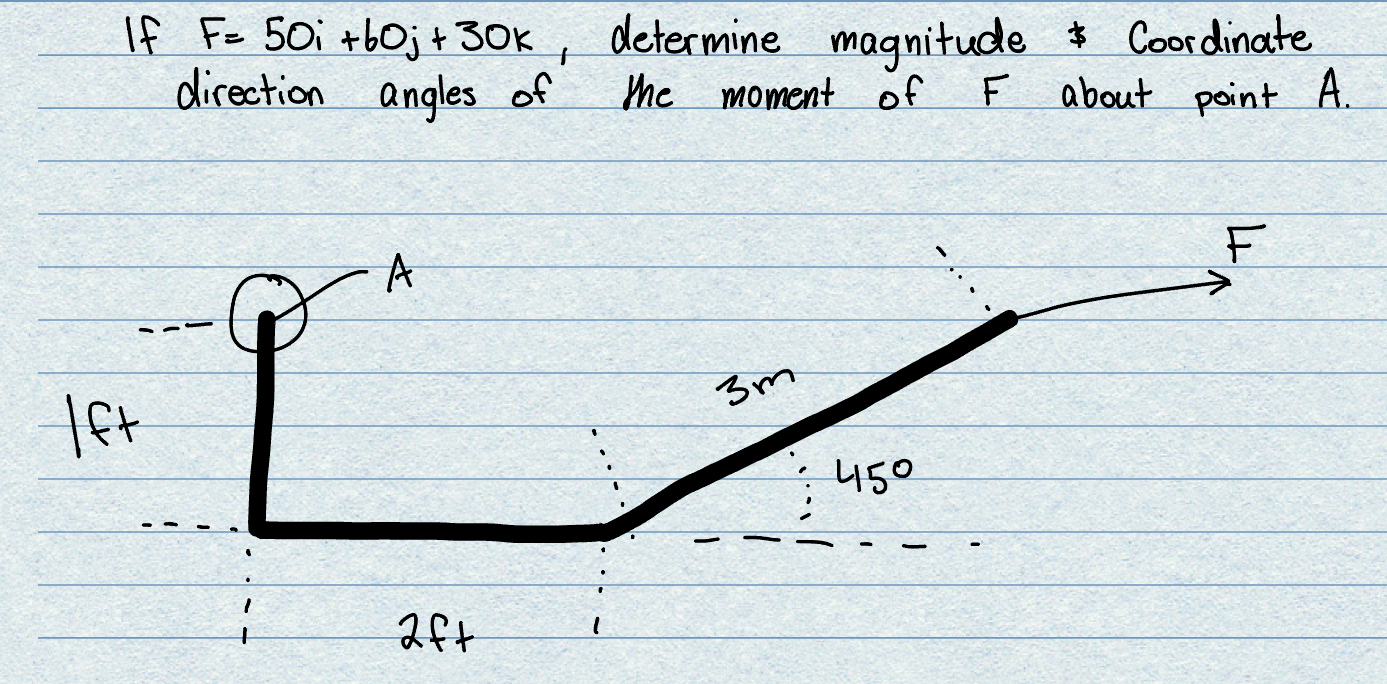 If F= 50i +60j + 30k , determine magnitude & Coordinate
direction angles of the moment of F about point A.
F
A
3m
1ft
45°
2ft